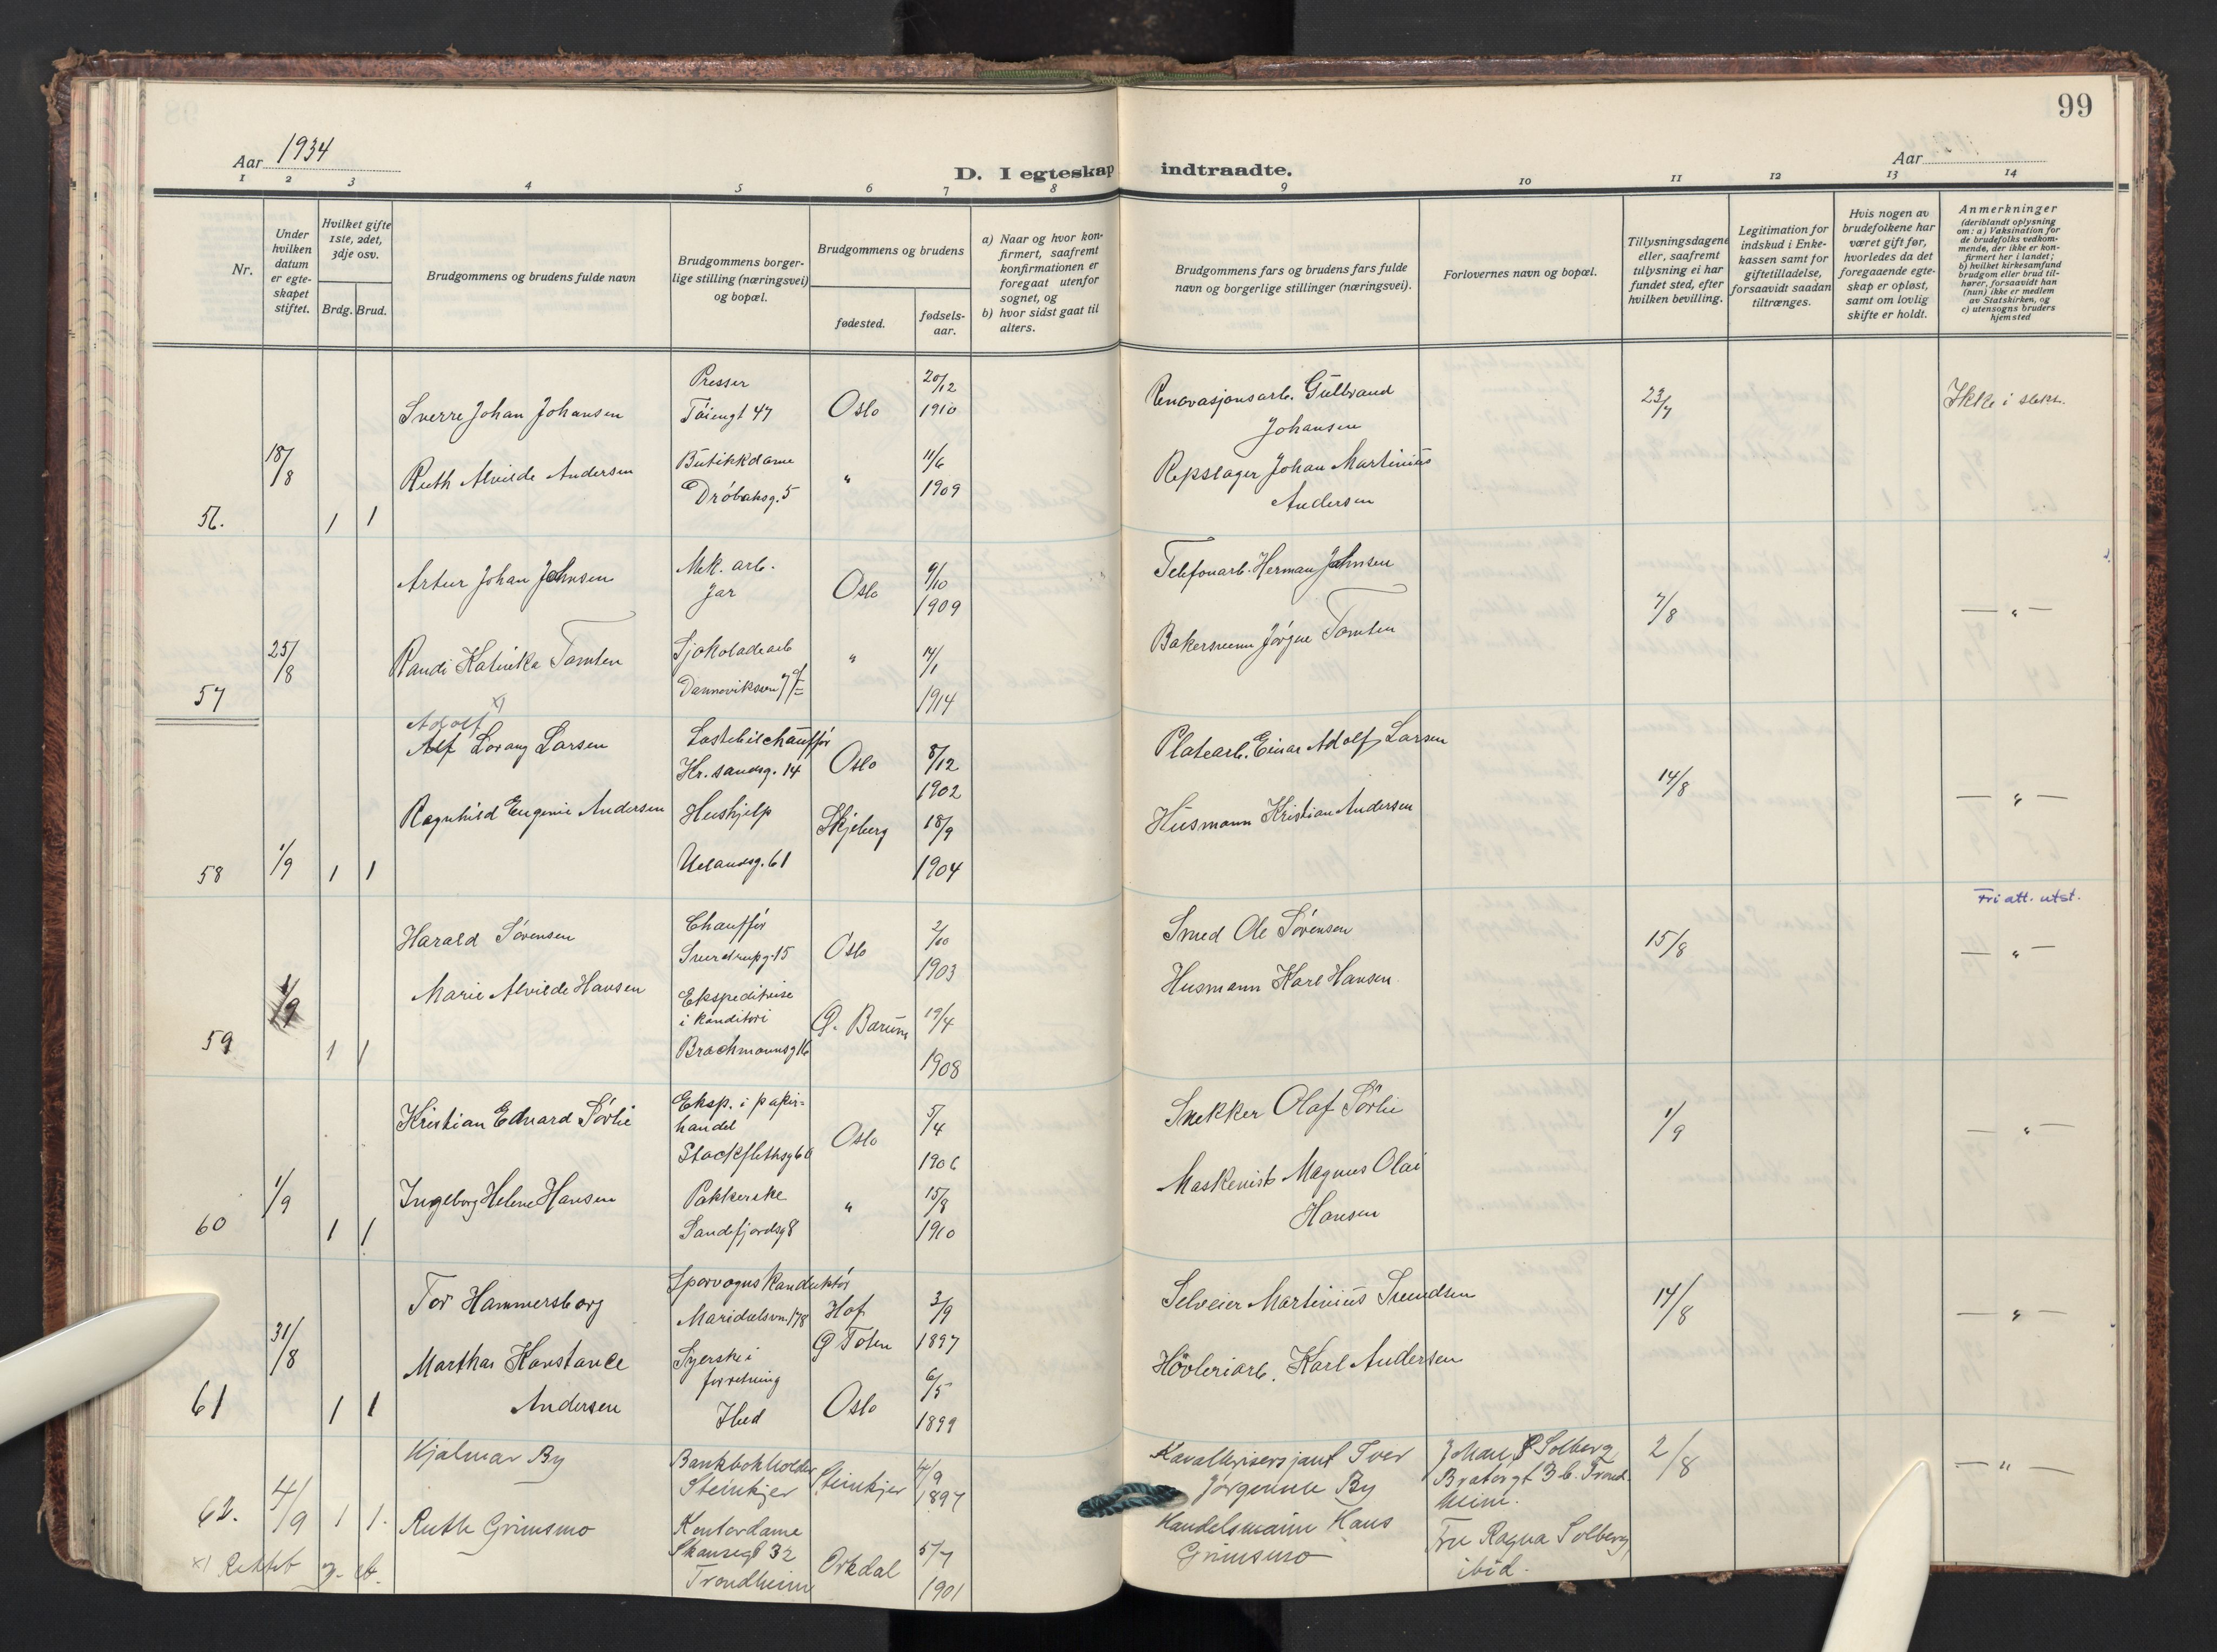 99
Aar 1934
Aar
D. I egteskap indtraadte.
1 2 3 4 5 6 7 8 9 10 11 12 13 14
Nr.
Under
hvilken
datum
er egte-
skapet
stiftet.
Hvilket gifte
1ste, 2det,
3dje osv.
Brdg. Brud.
Brudgommens og brudens fulde navn
Brudgommens borger-
lige stilling (næringsvei)
og bopæl.
Brudgommens og brudens
fødested.
fødsels-
aar.
a) Naar og hvor kon-
firmert, saafremt
konfirmationen er
foregaat utenfor
sognet, og
b) hvor sidst gaat til
alters.
Brudgommens fars og brudens fars fulde
navn og borgerlige stillinger (næringsvei).
Forlovernes navn og bopæl.
Tillysningsdagene
eller, saafremt
tillysning ei har
fundet sted, efter
hvilken bevilling.
Legitimation for
indskud i Enke-
kassen samt for
giftetilladelse,
forsaavidt saadan
tiltrænges.
Hvis nogen av
brudefolkene har
været gift før,
hvorledes da det
foregaaende egte-
skap er opløst,
samt om lovlig
skifte er holdt.
Anmerkninger
(deriblandt oplysning
om: a) Vaksination for
de brudefolks vedkom-
mende, der ikke er kon-
firmert her i landet;
b) hvilket kirkesamfund
brudgom eller brud til-
hører, forsaavidt han
(hun) ikke er medlem
av Statskirken, og
c) utensogns bruders
hjemsted
56.
18/8
1 1
Sverre Johan Johansen
Presser
Töiengt 47
Oslo
20/12
1910
Renovasjonsarb. Gulbrand
Johansen
23/7
Ikke i slekt.
Ruth Alvilde Andersen
Butikkdame
Dröbaksg. 5
"
11/6
1909
Repslager Johan Martinius
Andersen
57
25/8
Artur Johan Johnsen
Mek. arb.
Jar
Oslo
9/10
1909
Telefonarb. Herman Johnsen
7/8
— " —
Randi Katinka Tomten
Sjokoladearb
"
14/1
1914
Bakersvenn Jörgen Tomten
58
1/9
1 1
Adolf x)
Alf Lorang Larsen
Lastebilchaufför
Kr.sandsg. 14
Oslo
8/12
1902
Platearb. Einar Adolf Larsen
14/8
— " —
Ragnhild Eugenie Andersen
Hushjelp
Uelandsg. 61
Skjeberg
18/9
1904
Husmann Kristian Andersen
59
1/9
1 1
Harald Sörensen
Chaufför
Sverdrupg. 15
Oslo
2/10
1903
Smed Ole Sörensen
15/8
Fri att. utst.
— " —
Marie Alvilde Hansen
Ekspeditrise
i konditori
Brochmannsg 16
Ö. Bærum
19/4
1908
Husmann Karl Hansen
60
1/9
1 1
Kristian Edvard Sörlie
Eksp. i papir-
handel
Stockflethsg 60
Oslo
5/4
1906
Snekker Olaf Sörlie
1/9
— " —
Ingeborg Helene Hansen
Pakkerske
Sandefjordsg 8
"
15/8
1910
Maskenist Magnus Olai
Hansen
61
31/8
1 1
Tor Hammersborg
Sporvognskonduktör
Maridalsvn. 178
Hof
Ö Toten
3/9
1897
Selveier Martinius Svendsen
14/8
— " —
Marthas Konstance
Andersen
Syerske i
forretning
Ibid
Oslo
6/5
1899
Hövleriarb. Karl Andersen
62.
4/9
1 1.
Hjalmar By
Bankbokholder
Steinkjer
Steinkjer
4/9
1897
Kavallerisersjant Iver
Jörgensen By
Johan P Solberg
Bratörgt 3 b. Trond-
heim.
2/8
— " —
Ruth Grimsmo
Kontordame
Skansegt 32
Trondheim
Orkdal
5/7
1901
Handelsmann Hans
Grimsmo
Fru Ragna Solberg
ibid.
x) Rettet